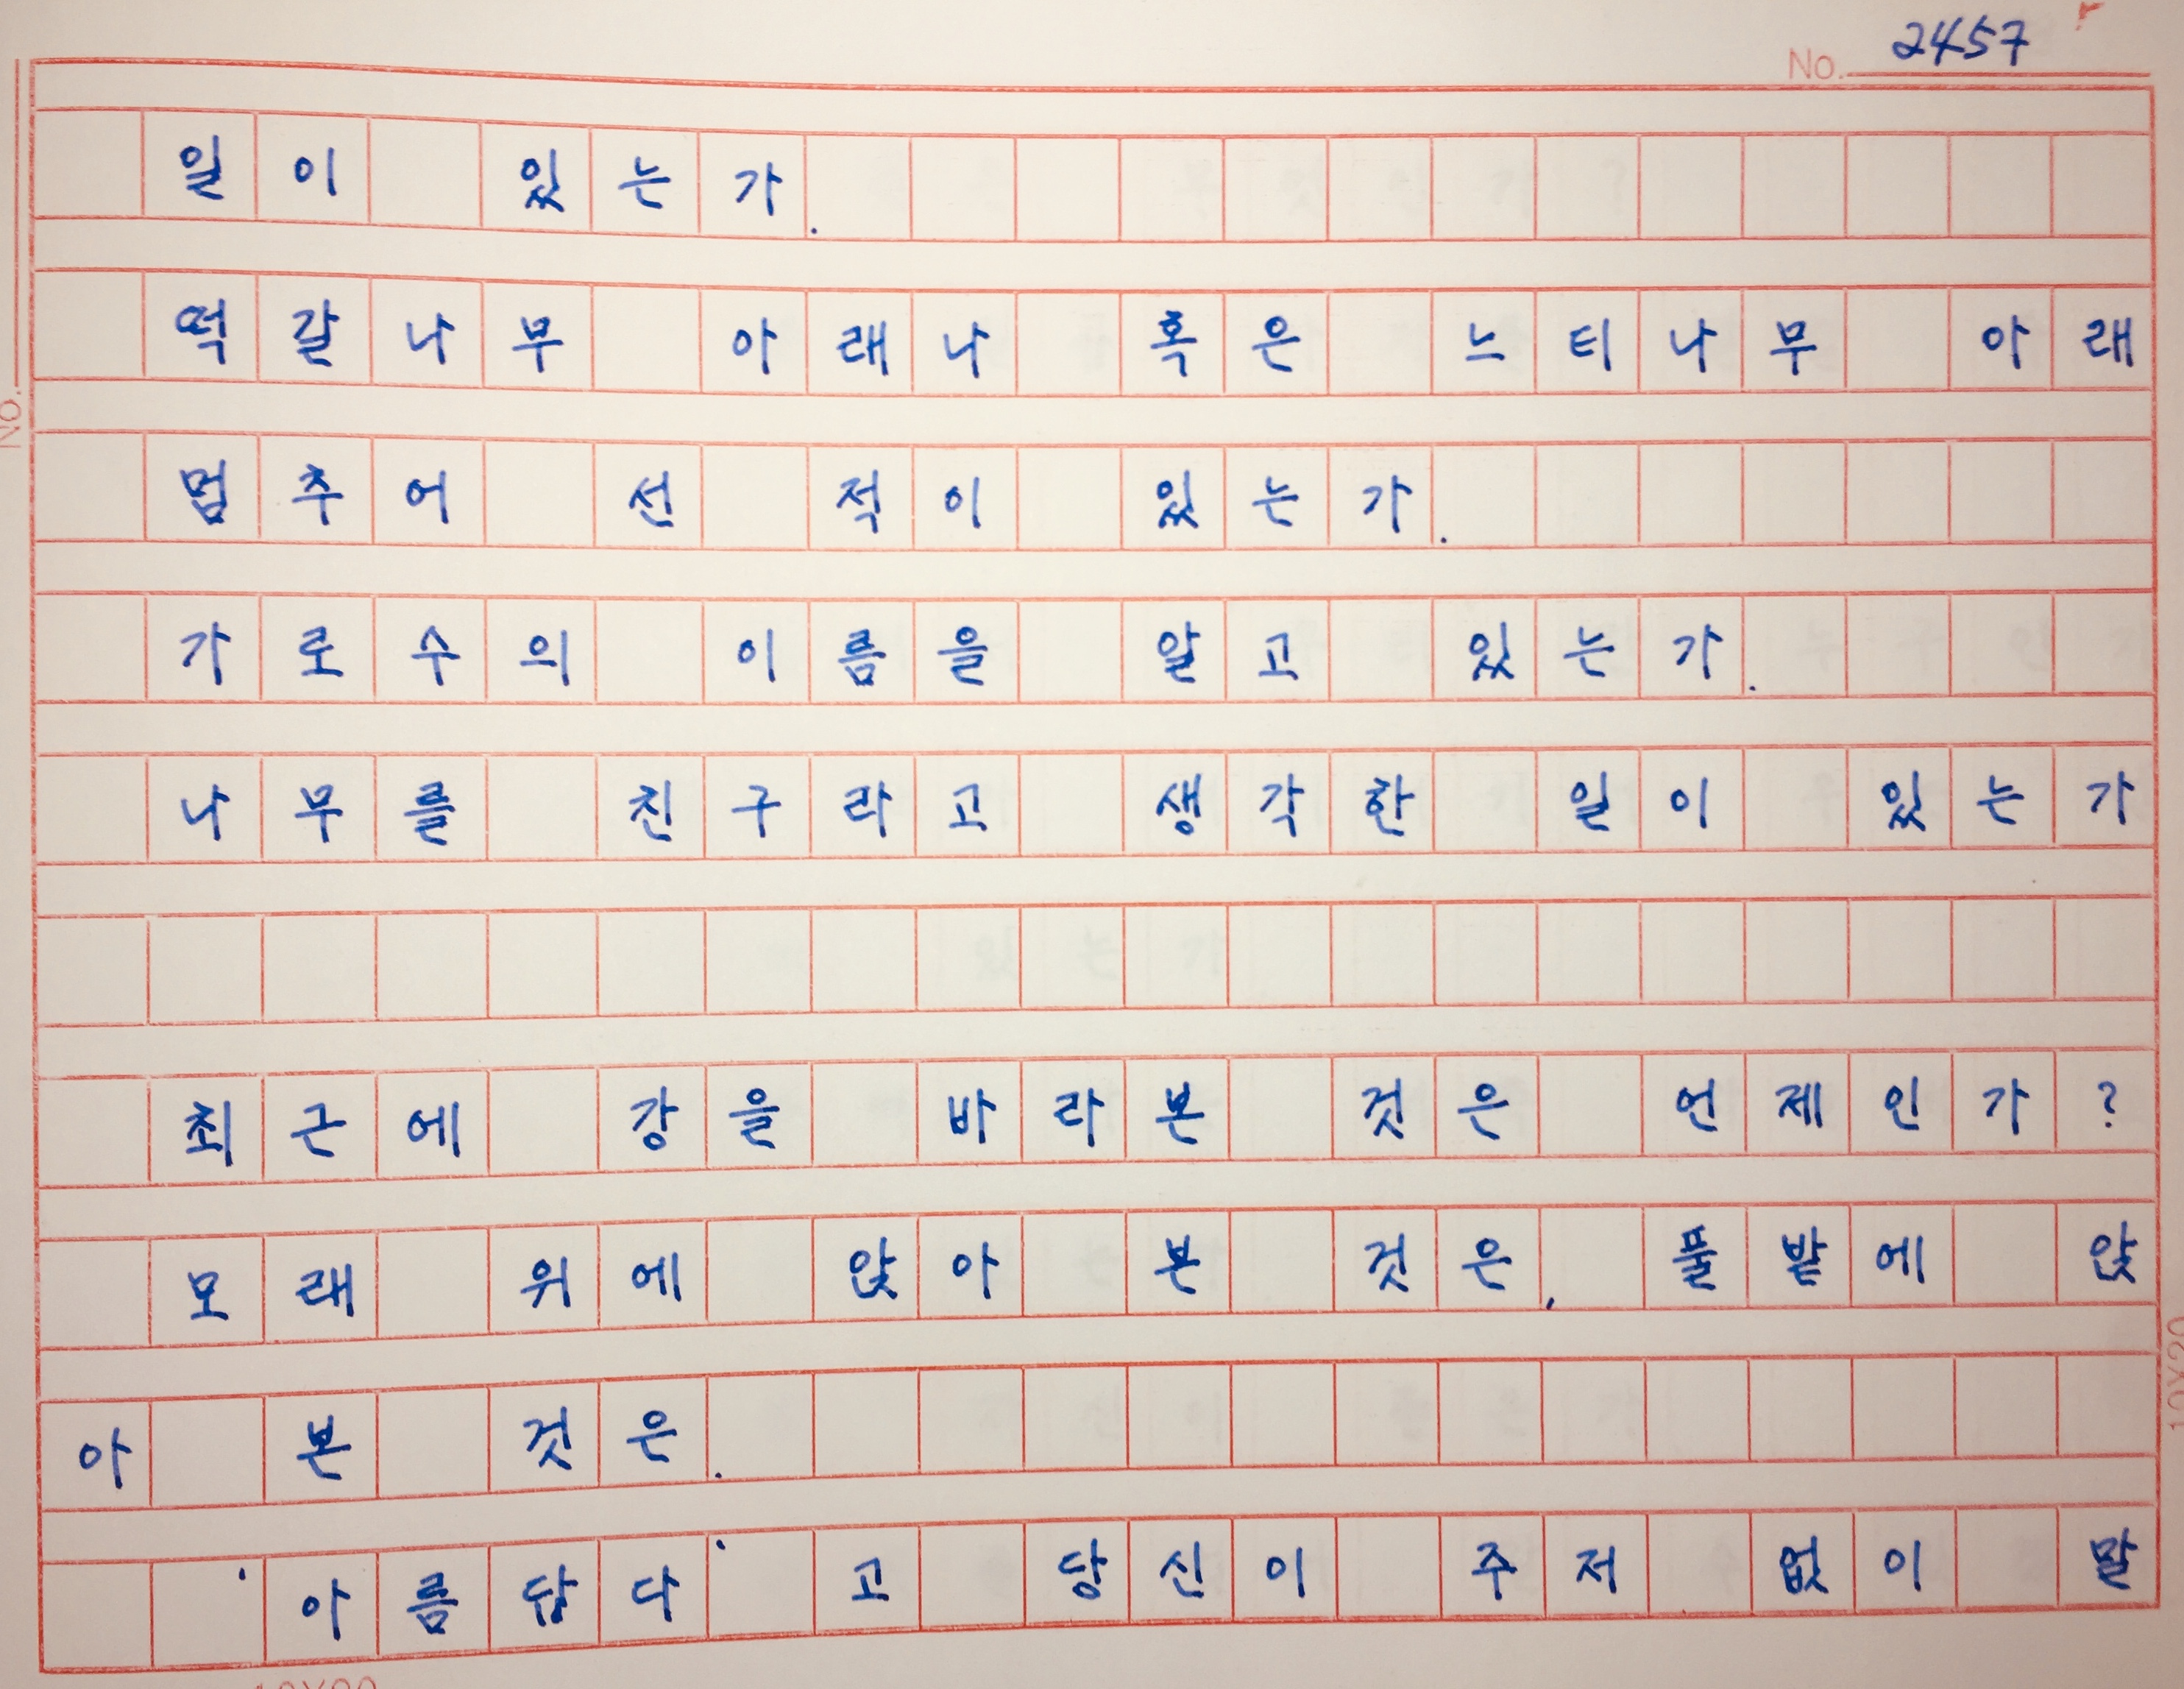 No. 2457
일이 있는가.
떡갈나무 아래나 혹은 느티나무 아래
멈추어 선 적이 있는가.
가로수의 이름을 알고 있는가.
나무를 친구라고 생각한 일이 있는가
최근에 강을 바라본 것은 언제인가?
모래 위에 앉아 본 것은, 풀밭에 앉
아 본 것은.
'아름답다'고 당신이 주저 없이 말
No.
10X20
10X20